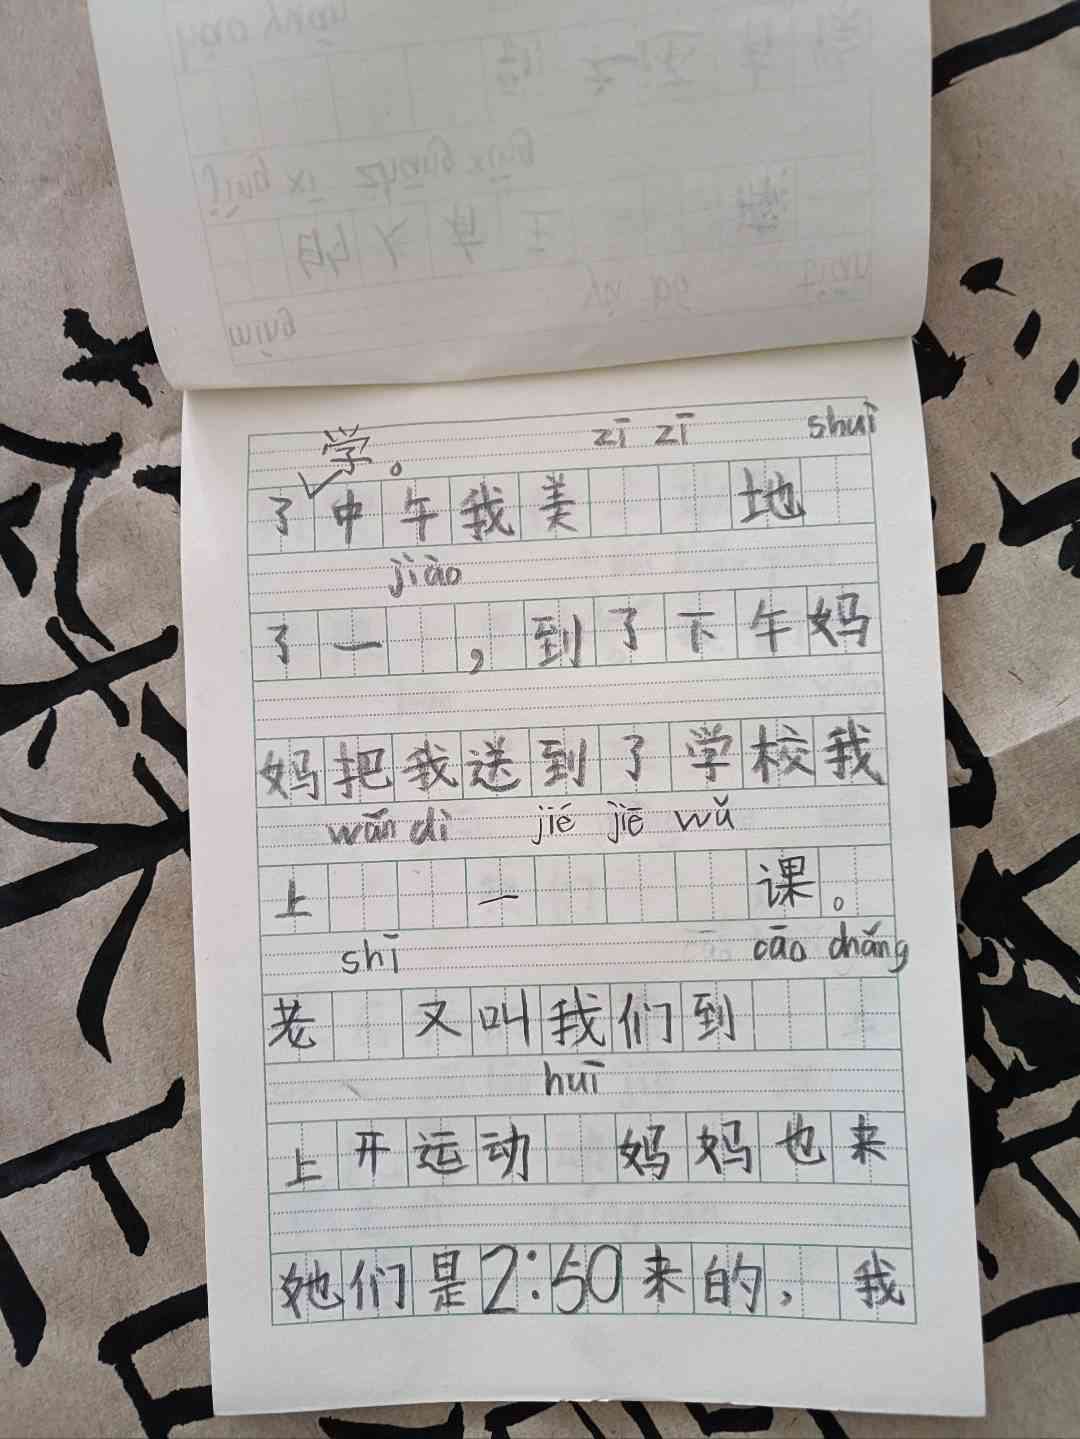 学。 zī zī shuì
了中午我美 地
jiào
了一 ，到了下午妈
妈把我送到了学校我
wán dì jié jiē wǔ
上 一 课。
shī cāo chǎng
老 又叫我们到
huī
上开运动 妈妈也来
她们是2:50来的，我